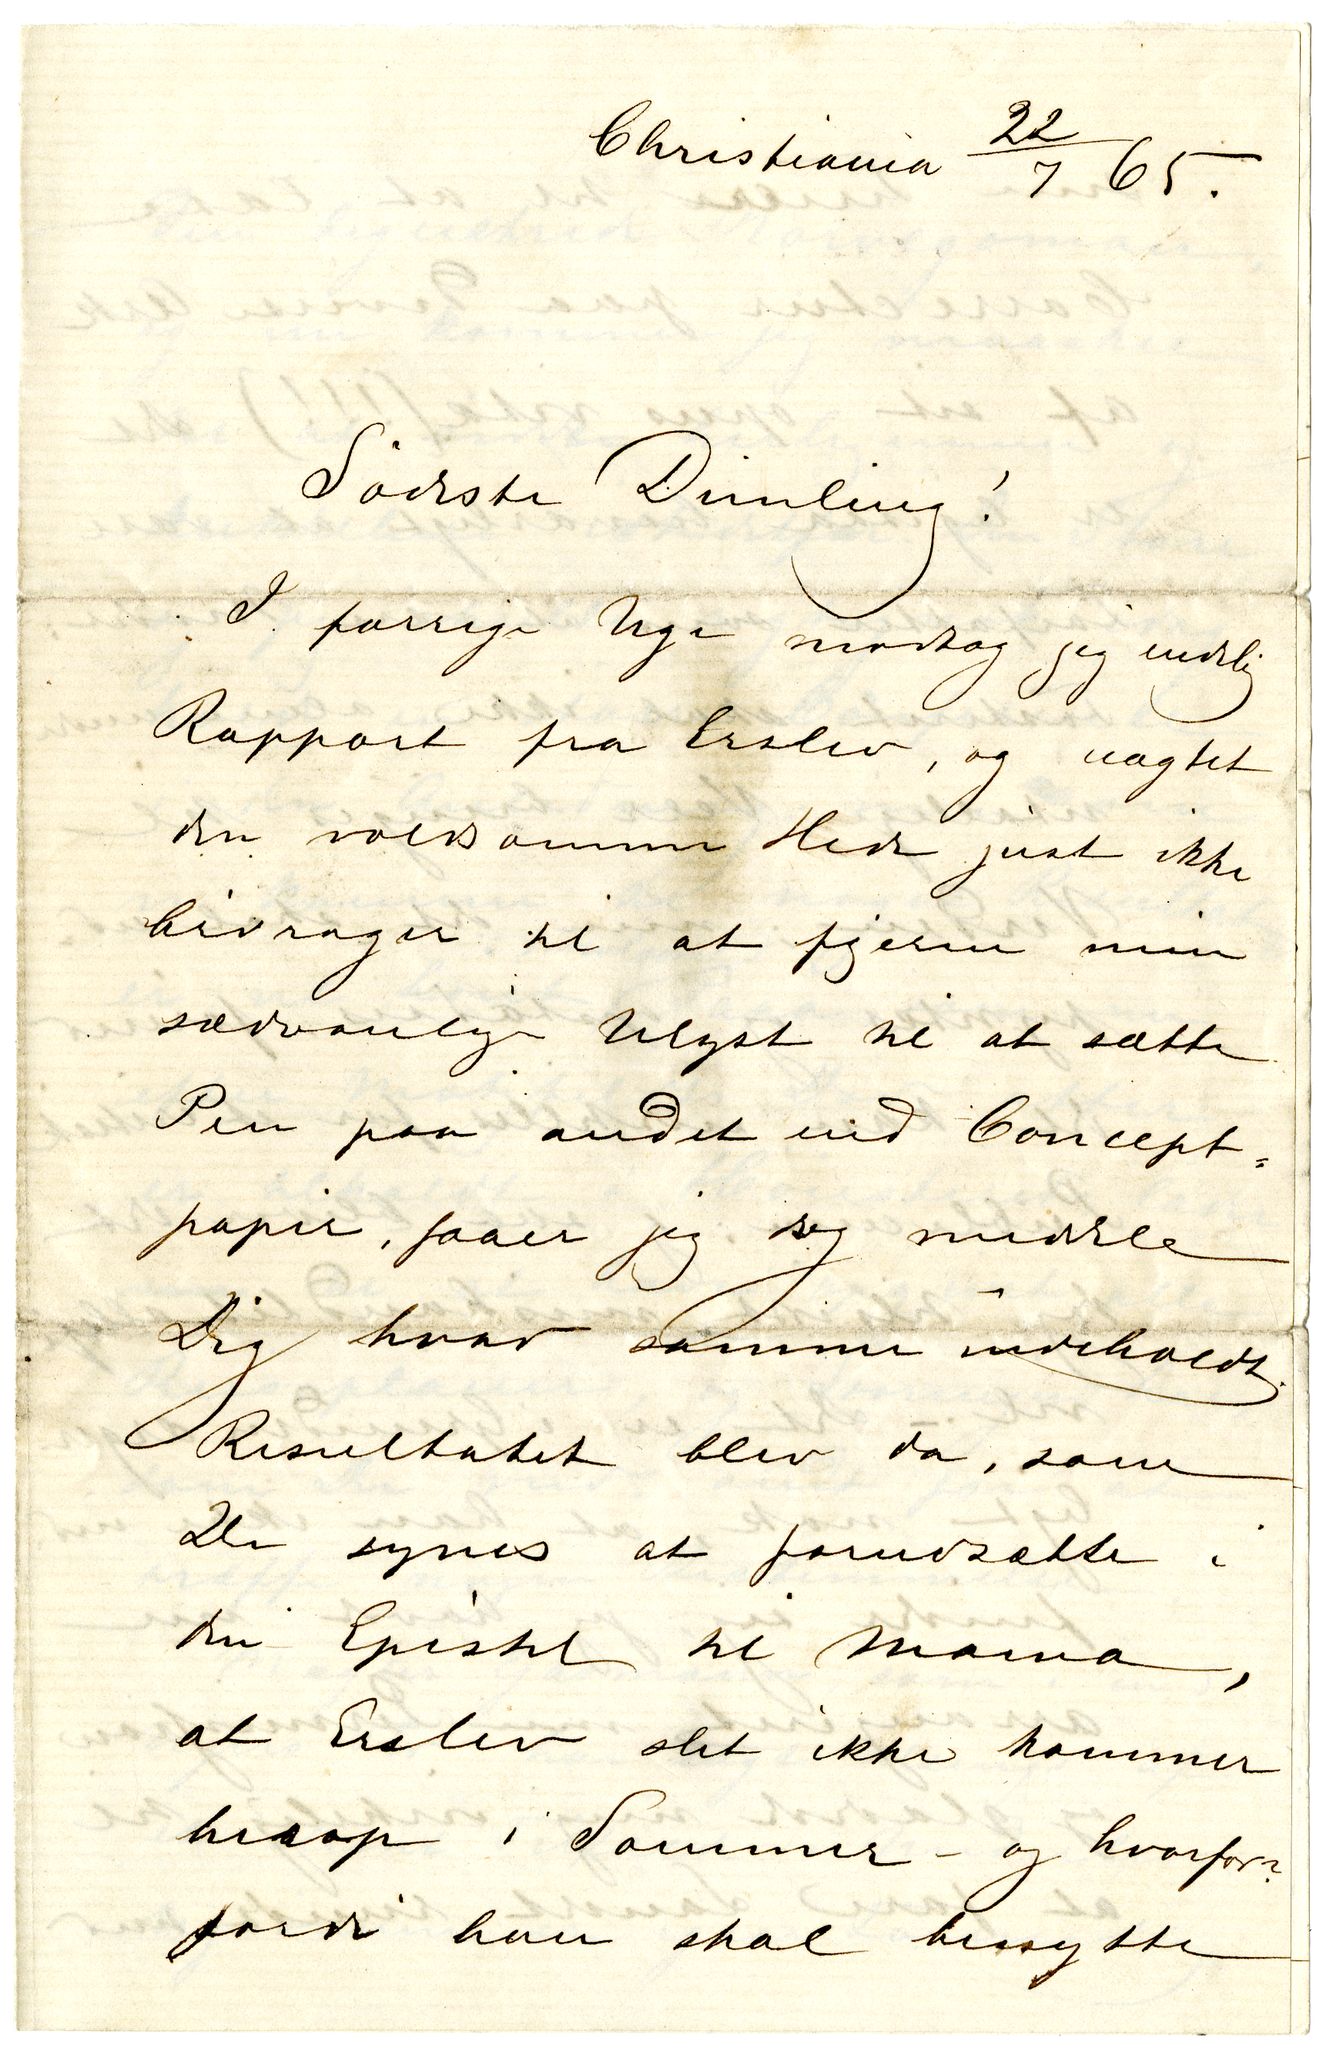 Christiania 22/7 65.
Sødeste Dimling!
I forrige Uge modtog jeg endelig
Rapport fra Erslev, og uagtet
den voldsomme Hede just ikke
bidrager til at fjerne min
sædvanlige Ulyst til at sætte
Pen paa andet end Concept=
papir, faaer jeg dog meddele
Dig hvad samme indeholdt.
Resultatet blev da, som
Du synes at forudsætte i
din Epistel til Mama,
at Erslev slet ikke kommer
herop i Sommer - og hvorfor?
fordi han skal benytte